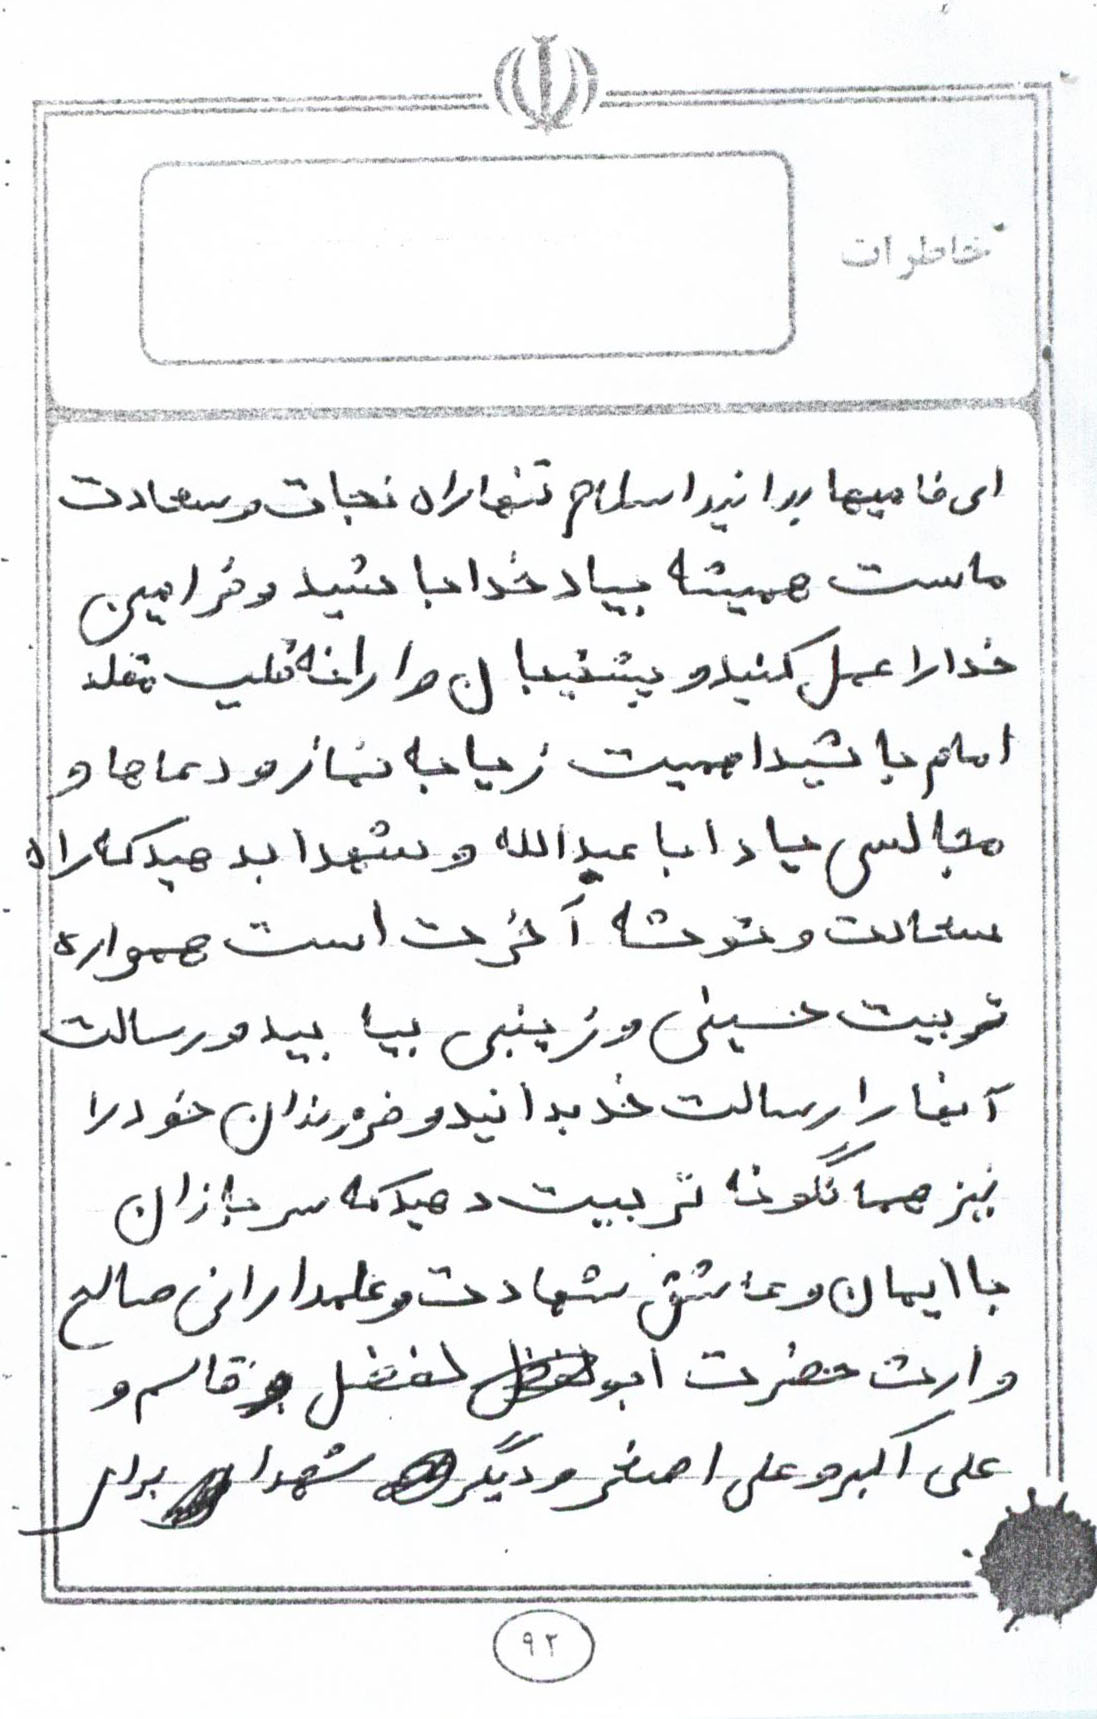 خاطرات
ای فامیها بدانید اسلام تنها راه نجات و سعادت
ماست همیشه بیاد خدا باشید و فرامین
خدا را عمل کنید و پشتیبان ولی قلب مقلد
امام باشید اهمیت زیا به نماز و دعاها و
مجالس یاد ابا عبدالله و شهدا بدهید که راه
سعادت و توشه آخرت است همواره
تربیت حسینی و زینبی بیابید و رسالت
آنها را رسالت خد بدانید و فرزندان خود را
نیز همانگونه تربیت دهید که سربازان
با ایمان و عاشق شهادت و علمدارانی صالح
وارث حضرت ابو لفضل و قاسم و
علی اکبر و علی اصغر و دیگر شهدا برای
۹۲